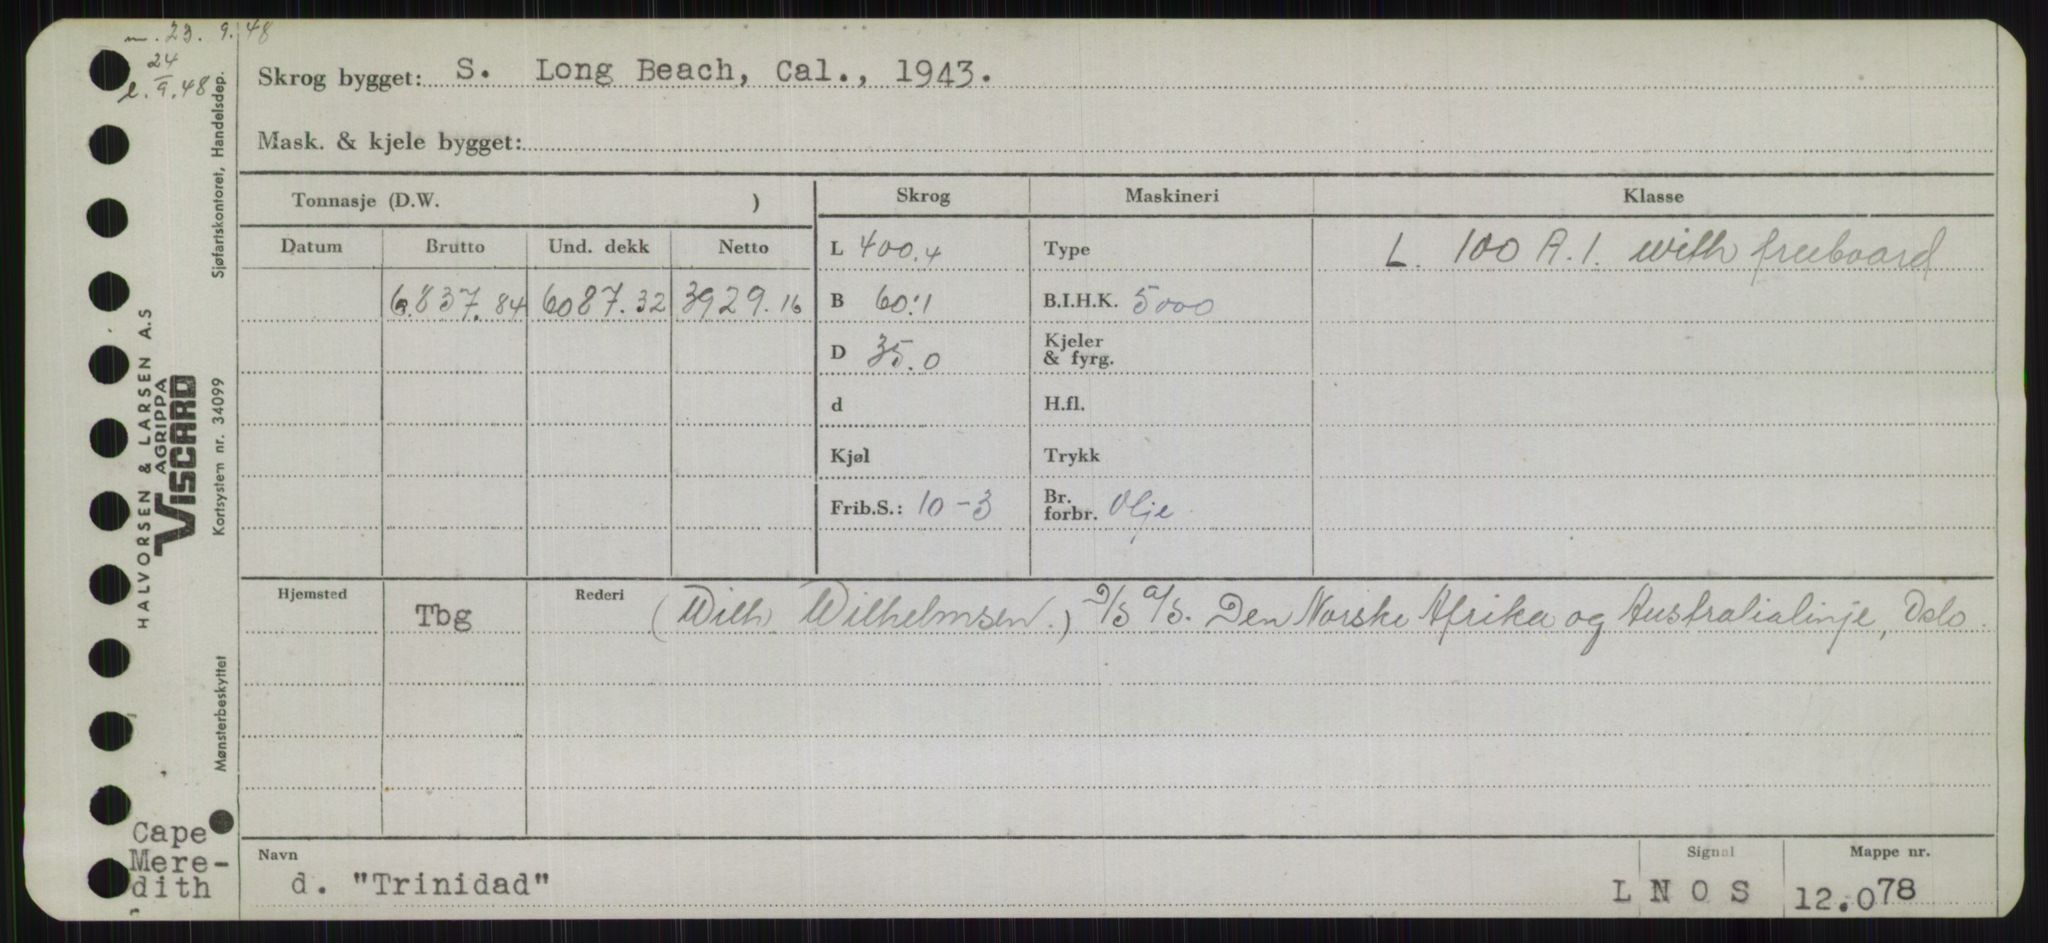 m. 23. 9. 48
24
l. 9. 48
Skrog bygget: S. Long Beach, Cal., 1943.
Mask. & kjele bygget:
Tonnasje (D.W. )
Skrog Maskineri Klasse
Datum Brutto Und. dekk Netto
L 400.4 Type L. 100 A.1. with freeboard
6.837.84 6087.32 3929.16 B 60.1 B.I.H.K. 5000
D 35.0 Kjeler & fyrg.
d H.fl.
Kjøl Trykk
Frib.S.: 10-3 Br. forbr. Olje
Hjemsted Tbg Rederi (Wilh. Wilhelmsen.) D/S A/S. Den Norske Afrika og Australialinje, Oslo.
Navn Signal Mappe nr.
d. "Trinidad" L N O S 12.078
Sjøfartskontoret, Handelsdep.
HALVORSEN & LARSEN A.S
AGRIPPA
VISCARD
Kortsystem nr. 34099
Mønsterbeskyttet
Cape
Mere-
dith